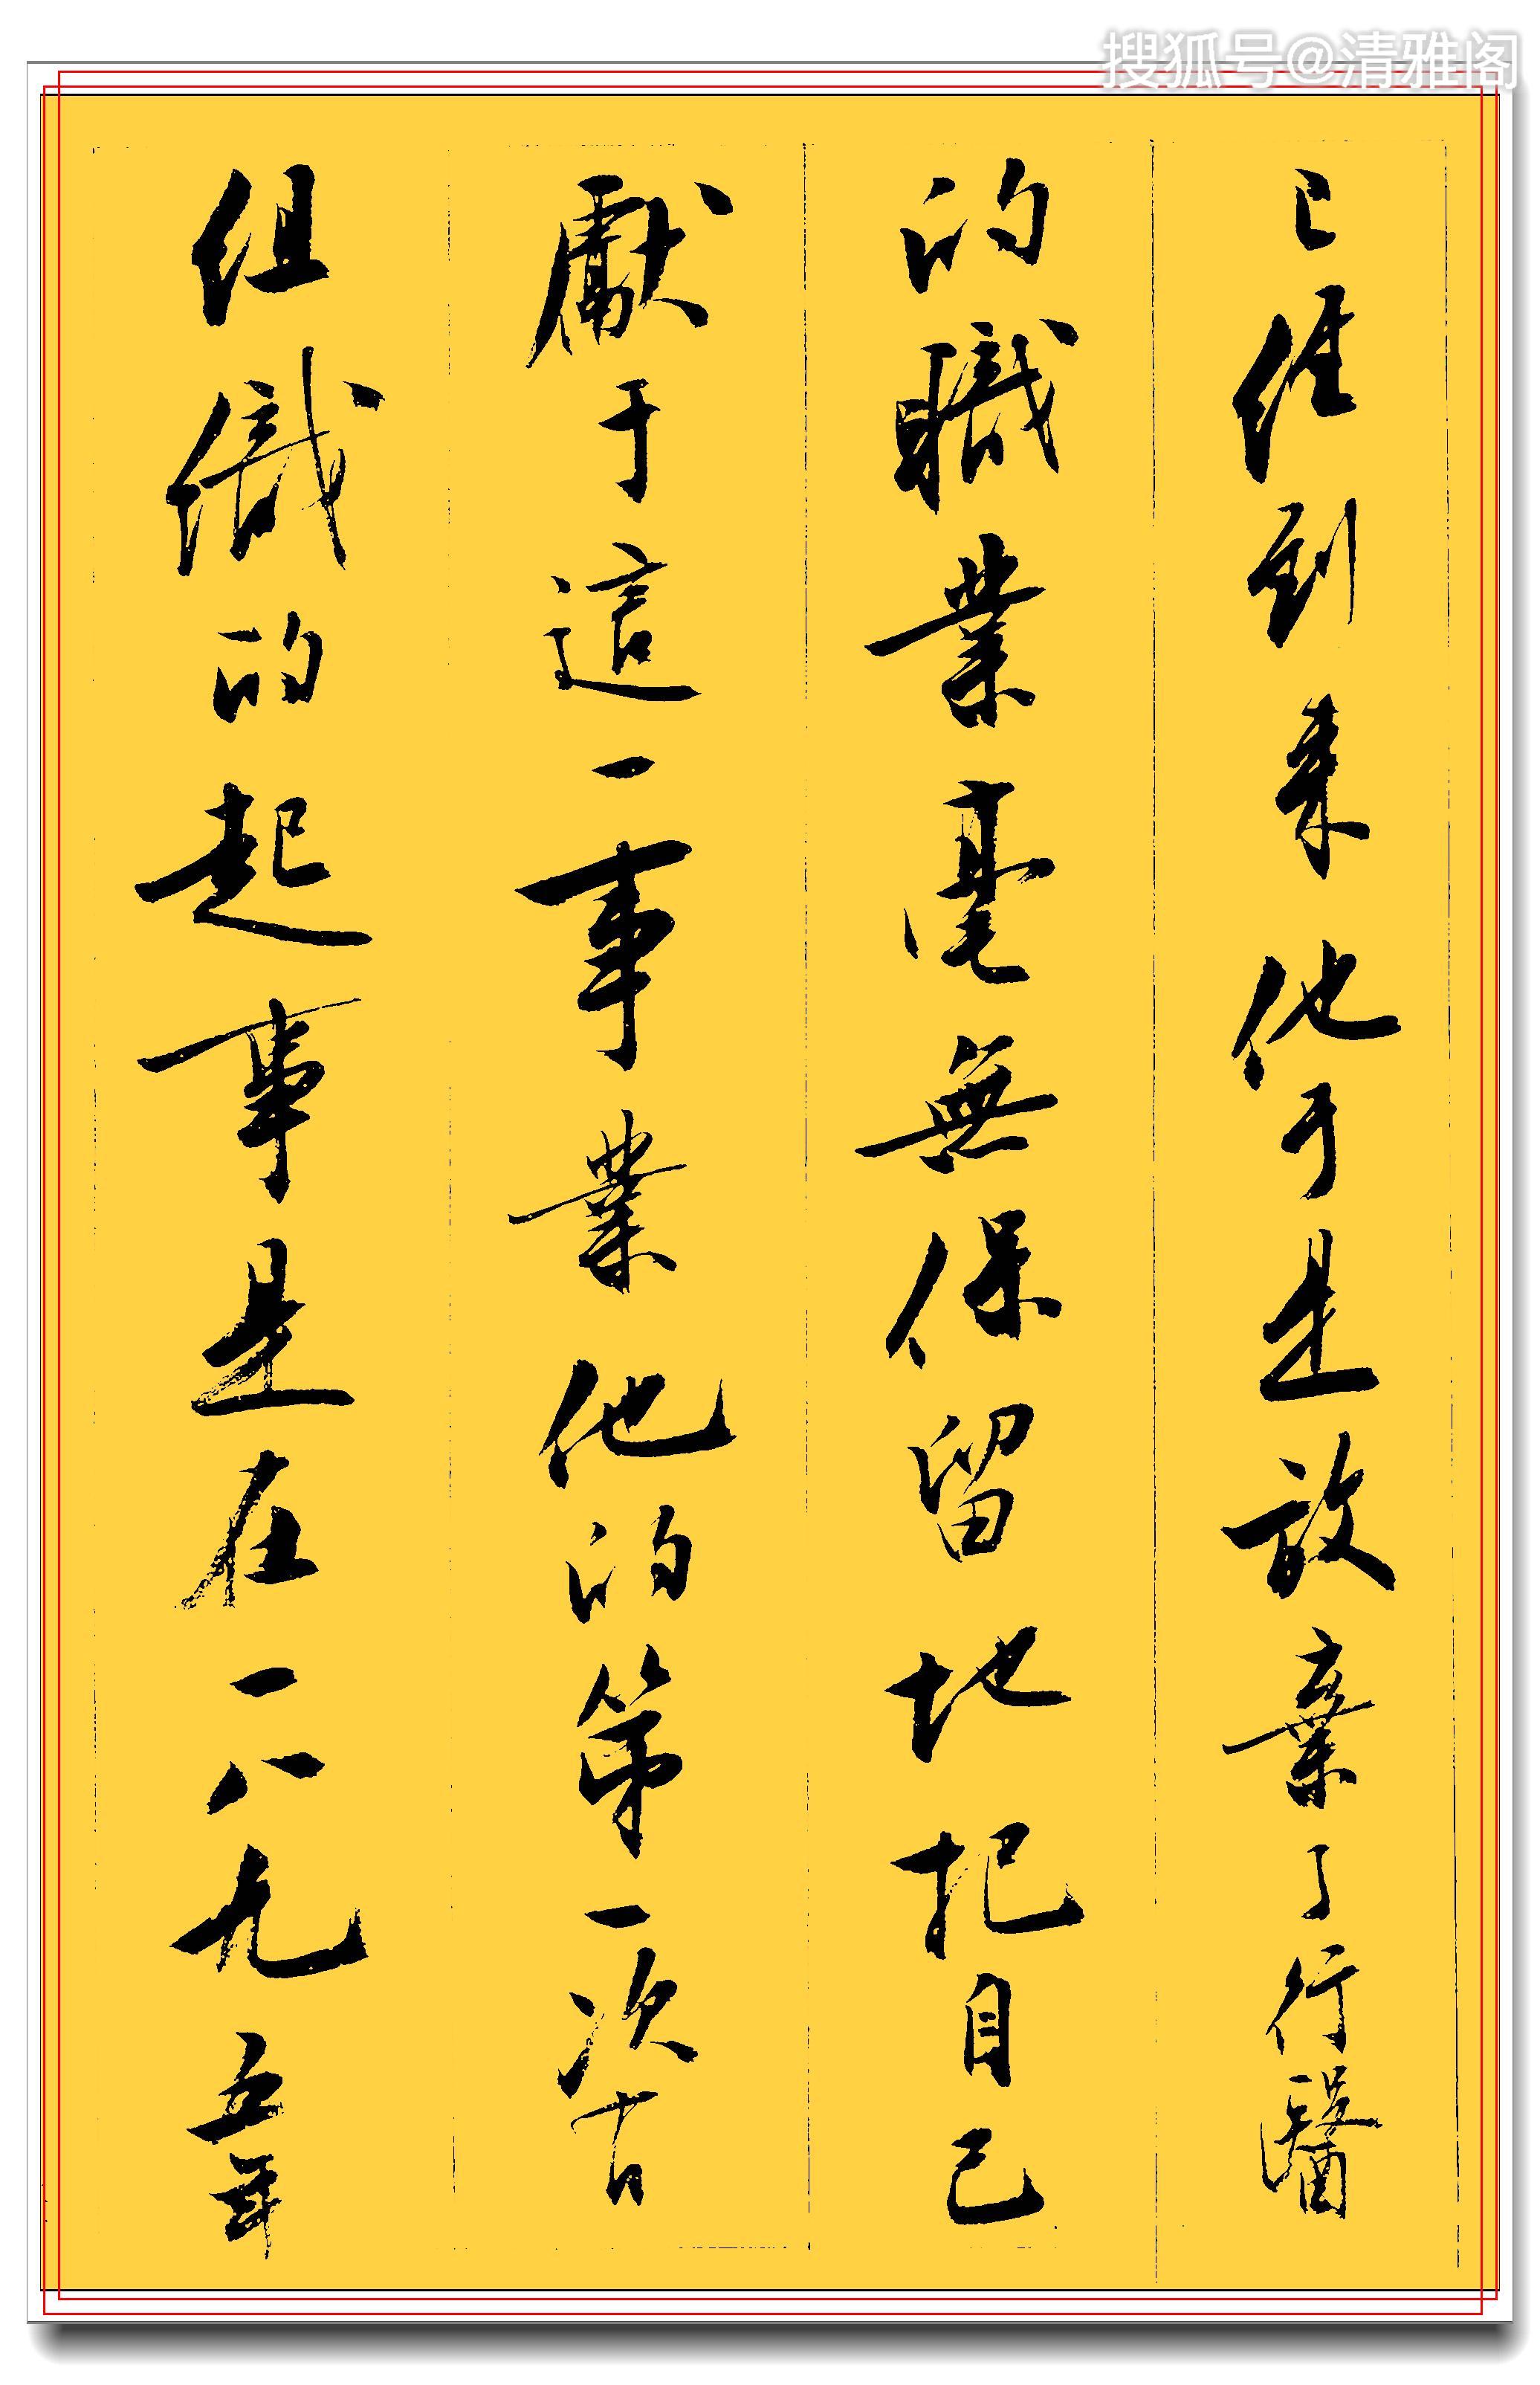 搜狐号@清雅阁
已经到来他于是放棄了行醫
的職業毫無保留地把自己
獻于這一事業他的第一次有
组織的起事是在一八九五年